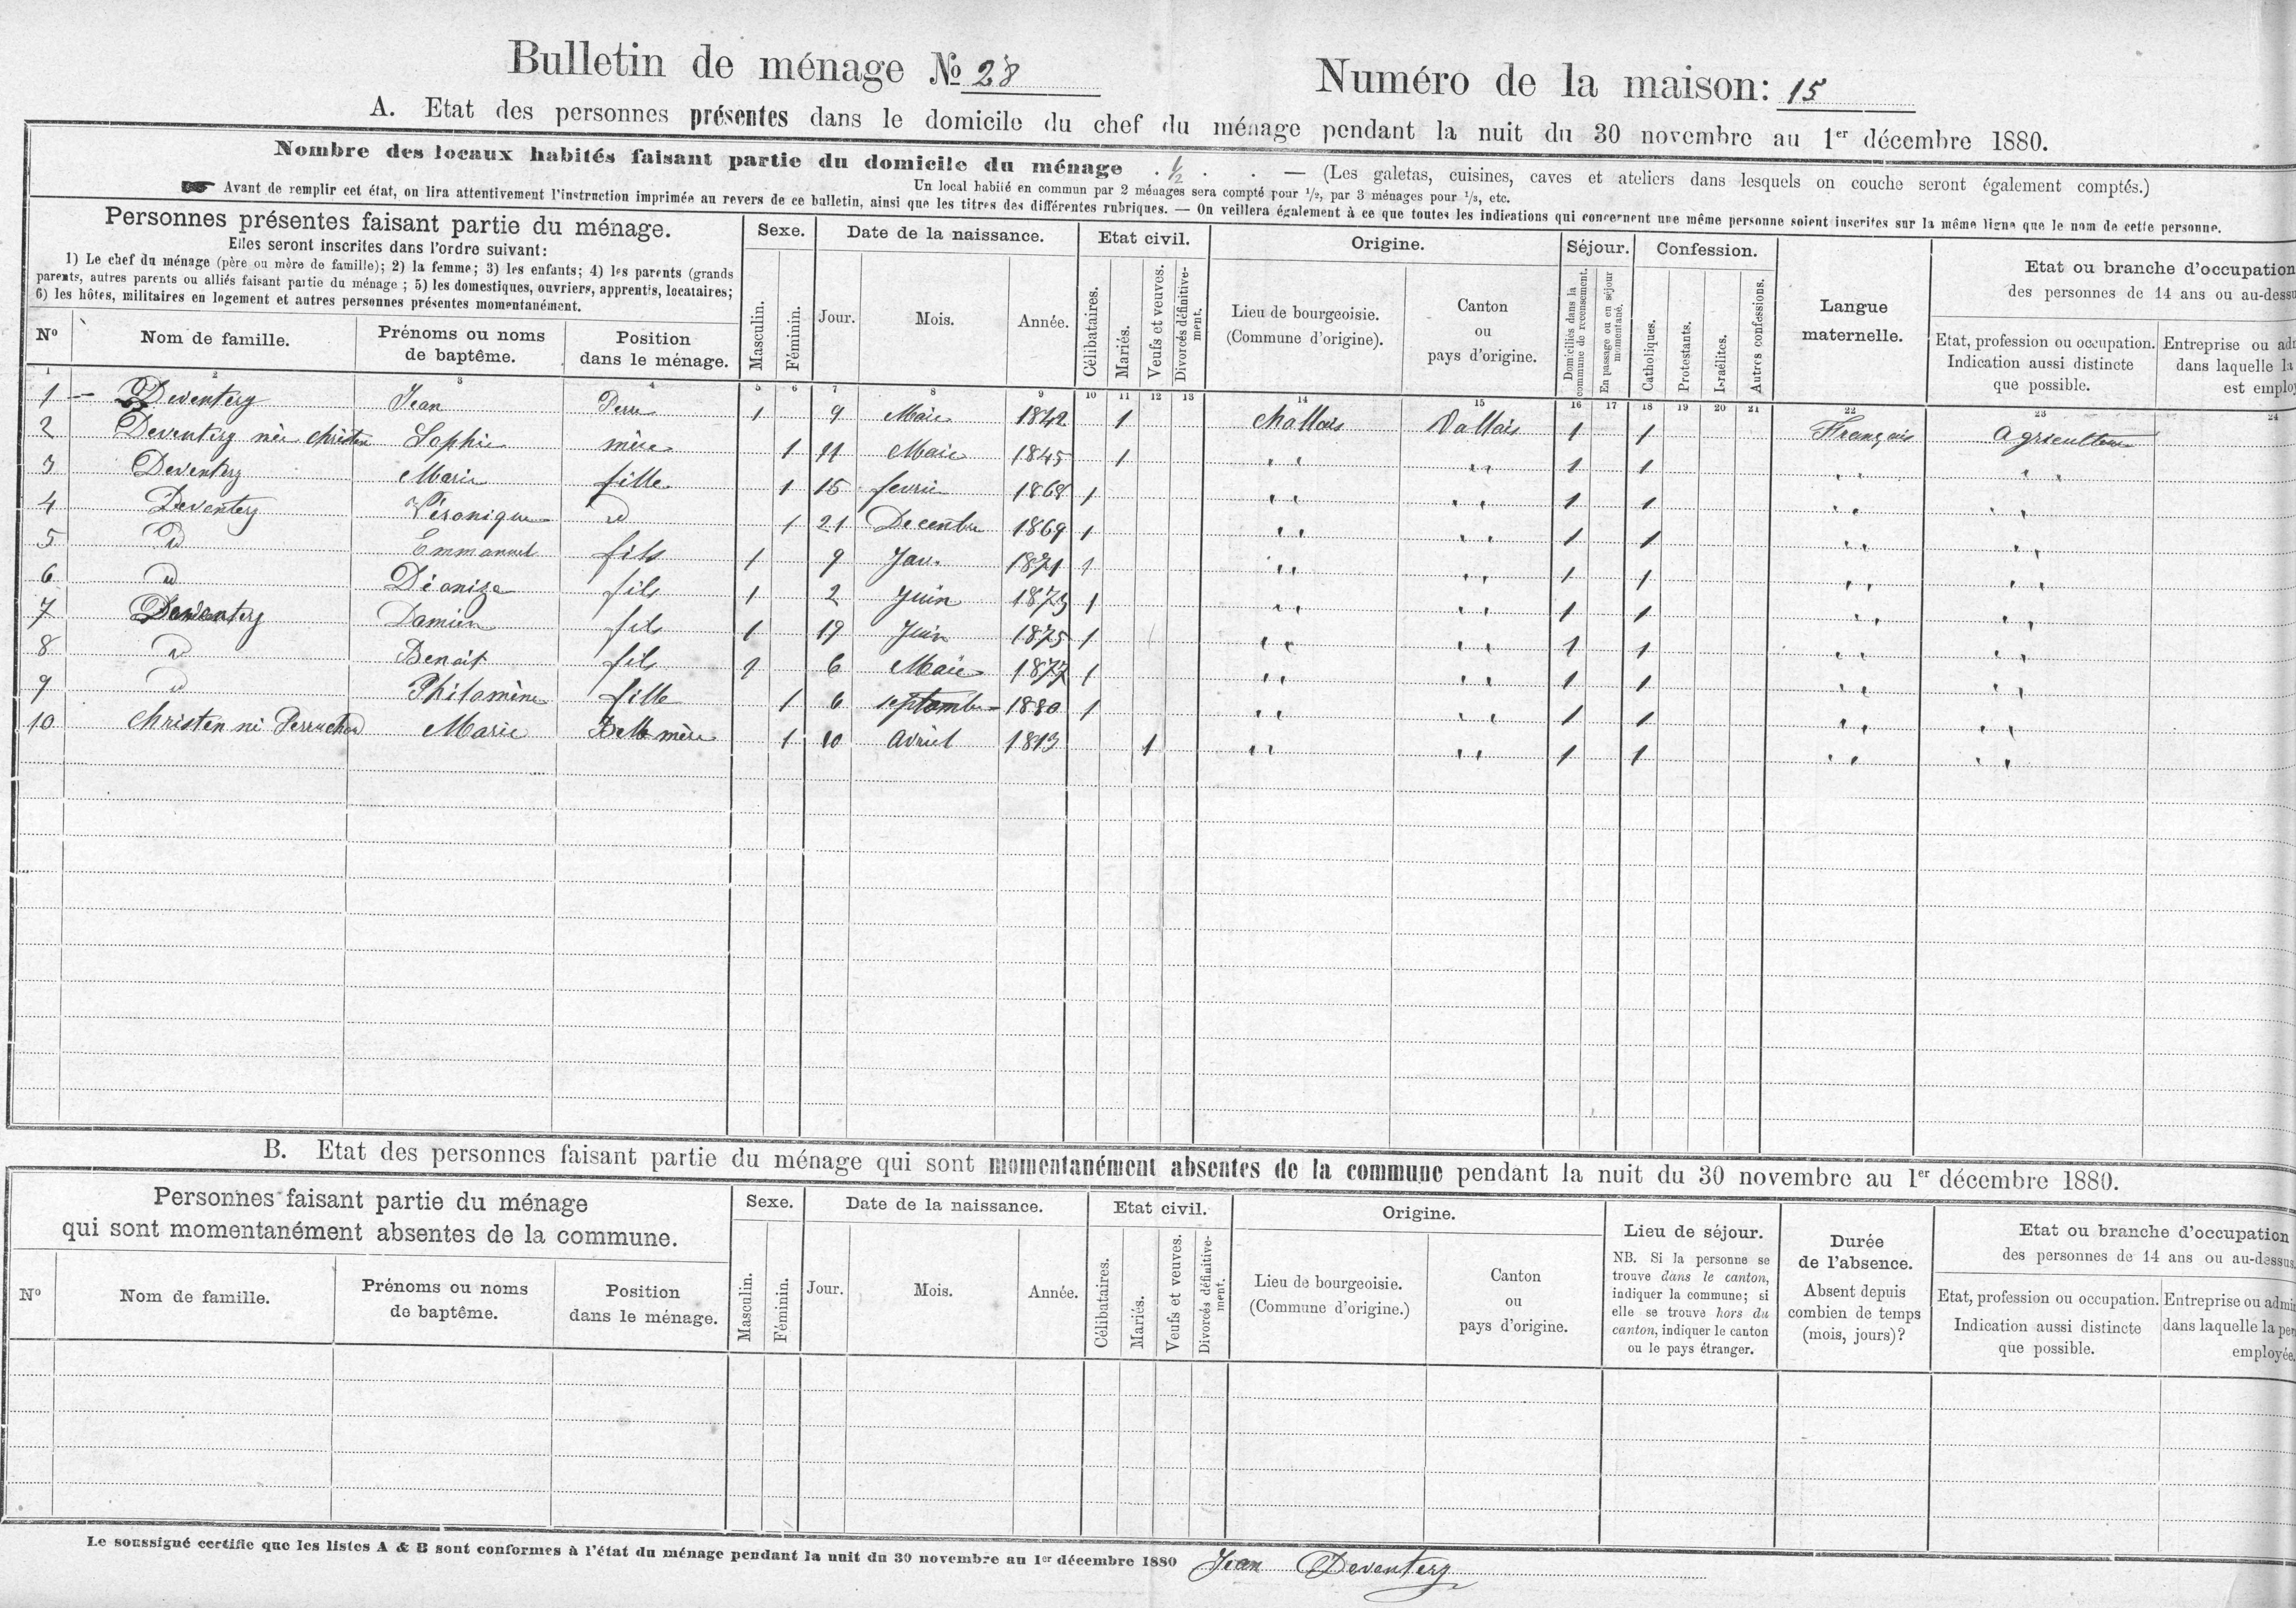 Bulletin de ménage No 28
Numéro de la maison: 15
A. Etat des personnes présentes dans le domicile du chef du ménage pendant la nuit du 30 novembre au 1er décembre 1880.
Nombre des locaux habités faisant partie du domicile du ménage . 1/2 . . — (Les galetas, cuisines, caves et ateliers dans lesquels on couche seront également comptés.)
Un local habité en commun par 2 ménages sera compté pour 1/2, par 3 ménages pour 1/3, etc.
☛ Avant de remplir cet état, on lira attentivement l'instruction imprimée au revers de ce bulletin, ainsi que les titres des différentes rubriques. — On veillera également à ce que toutes les indications qui concernent une même personne soient inscrites sur la même ligne que le nom de cette personne.
Personnes présentes faisant partie du ménage.
Elles seront inscrites dans l'ordre suivant:
1) Le chef du ménage (père ou mère de famille); 2) la femme; 3) les enfants; 4) les parents (grands
parents, autres parents ou alliés faisant partie du ménage ; 5) les domestiques, ouvriers, apprentis, locataires;
6) les hôtes, militaires en logement et autres personnes présentes momentanément.
No
Nom de famille.
Prénoms ou noms
de baptême.
Position
dans le ménage.
Sexe.
Masculin.
Féminin.
Date de la naissance.
Jour.
Mois.
Année.
Etat civil.
Célibataires.
Mariés.
Veufs et veuves.
Divorcés définitive-
ment.
Origine.
Lieu de bourgeoisie.
(Commune d'origine).
Canton
ou
pays d'origine.
Séjour.
Domiciliés dans la
commune de recensement.
En passage ou en séjour
momentané.
Confession.
Catholiques.
Protestants.
Israélites.
Autres confessions.
Langue
maternelle.
Etat ou branche d'occupation
des personnes de 14 ans ou au-dessu
Etat, profession ou occupation.
Indication aussi distincte
que possible.
Entreprise ou adm
dans laquelle la
est employ
1 2 3 4 5 6 7 8 9 10 11 12 13 14 15 16 17 18 19 20 21 22 23 24
1 — Deventery Jean Perre 1 9 Maie 1842 1 Challais Vallais 1 1 Français Agriculteur
2 Deventery née Christen Sophie mère 1 11 Maie 1845 1 " " 1 1 " "
3 Deventery Marie fille 1 15 fevrie 1868 1 " " 1 1 " "
4 Deventery Véronique id 1 21 Decembre 1869 1 " " 1 1 " "
5 id Emmanuel fils 1 9 Jan. 1871 1 " " 1 1 " "
6 id Dionise fils 1 2 Juin 1873 1 " " 1 1 " "
7 Deventery Damien fils 1 19 Juin 1875 1 " " 1 1 " "
8 id Benoit fils 1 6 Maie 1877 1 " " 1 1 " "
9 id Philomène fille 1 6 septembre 1880 1 " " 1 1 " "
10 Christen né Perruchod Marie Belle mère 1 10 Avriel 1813 1 " " 1 1 " "
B. Etat des personnes faisant partie du ménage qui sont momentanément absentes de la commune pendant la nuit du 30 novembre au 1er décembre 1880.
Personnes faisant partie du ménage
qui sont momentanément absentes de la commune.
No
Nom de famille.
Prénoms ou noms
de baptême.
Position
dans le ménage.
Sexe.
Masculin.
Féminin.
Date de la naissance.
Jour.
Mois.
Année.
Etat civil.
Célibataires.
Mariés.
Veufs et veuves.
Divorcés définitive-
ment.
Origine.
Lieu de bourgeoisie.
(Commune d'origine.)
Canton
ou
pays d'origine.
Lieu de séjour.
NB. Si la personne se
trouve dans le canton,
indiquer la commune; si
elle se trouve hors du
canton, indiquer le canton
ou le pays étranger.
Durée
de l'absence.
Absent depuis
combien de temps
(mois, jours)?
Etat ou branche d'occupation
des personnes de 14 ans ou au-dessus
Etat, profession ou occupation.
Indication aussi distincte
que possible.
Entreprise ou admi
dans laquelle la per
employée.
Le soussigné certifie que les listes A & B sont conformes à l'état du ménage pendant la nuit du 30 novembre au 1er décembre 1880 Jean Deventery